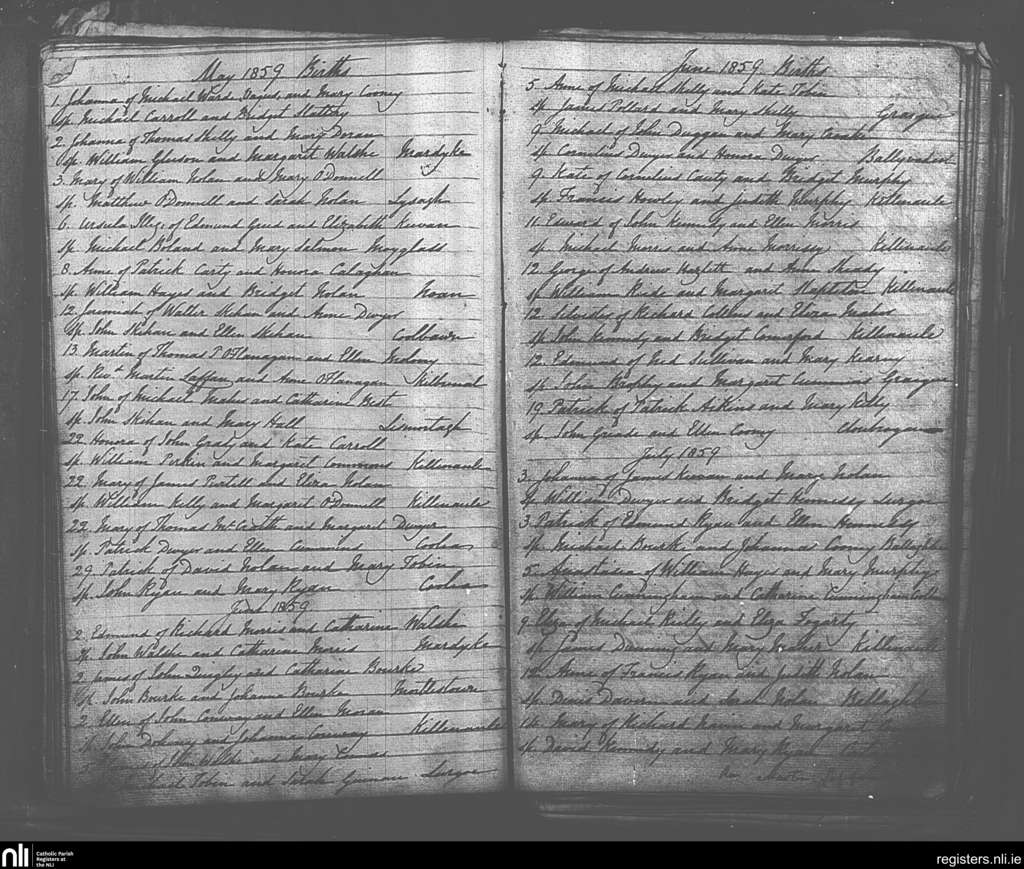 May 1859 Births
1. Johanna of Michael Ward and Mary Cooney
Sp. Michael Carroll and Bridget Slattery
2. Johanna of Thomas Skelly and Mary Doran
Sp. William Gleeson and Margaret Walshe Mardyke
3. Mary of William Nolan and Mary O'Donnell
Sp. Matthew O'Donnell and Sarah Nolan Lysagh
6. Ursula Illeg. of Edmund and Elizabeth Kirwan
Sp. Michael Boland and Mary Salmon Moyglass
8. Anne of Patrick Carty and Honora Calaghan
Sp. William Hayes and Bridget Nolan Noan
12. Jeremiah of Walter Skehan and Anne Dwyer
Sp. John Skehan and Ellen Skehan Coolbawn
13. Martin of Thomas P. O'Flanagan and Ellen Molony
Sp. Revd. Martin Laffan and Anne O'Flanagan
17. John of Michael Maher and Catharine Best
Sp. John Skehan and Mary Hall Lismortagh
22. Honora of John Grady and Kate Carroll
Sp. William Perkin and Margaret Commons Killenaule
22. Mary of James Purtell and Eliza Nolan
Sp. William Kelly and Margaret O'Donnell Killenaule
22. Mary of Thomas and Margaret Dwyer
Sp. Patrick Dwyer and Ellen Cummins Coolea
29. Patrick of David Nolan and Mary Tobin
Sp. John Ryan and Mary Ryan Coolea
June 1859
2. Edmund of Richard Morris and Catharine Walshe
Sp. John Walshe and Catharine Morris Mardyke
2. James of John Quigley and Catharine Bourke
Sp. John Bourke and Johanna Bourke
2. Ellen of John Conway and Ellen Moran
Sp. John Doheny and Johanna Conway Killenaule
of John Walshe and Mary
Tobin and Sarah Lurgoe
June 1859 Births
5. Anne of Michael Skelly and Kate Tobin
Sp. James Pollard and Mary Skelly Graigue
9. Michael of John Duggan and Mary Croake
Sp. Cornelius Dwyer and Honora Dwyer
9. Kate of Cornelius Canty and Bridget Murphy
Sp. Francis Howley and Judith Murphy Killenaule
11. Edward of John Kennedy and Ellen Morris
Sp. Michael Morris and Anne Morrissy Killenaule
12. George of Andrew Hazlett and Anne Meady
Sp. William Ride and Margaret Stapleton Killenaule
12. of Richard Collins and Eliza Maher
Sp. John Kennedy and Bridget Comerford Killenaule
12. Edmund of Ned Sullivan and Mary Kearny
Sp. John Brophy and Margaret Cummins Graigue
19. Patrick of Patrick Aikins and Mary Kelly
Sp. John Greade and Ellen Coony
July 1859
3. Johanna of James Kirwan and Mary Nolan
Sp. William Dwyer and Bridget Kennedy Lurgoe
3. Patrick of Edmund Ryan and Ellen Hennessy
Sp. Michael Bourke and Johanna Coony
5. Anastasia of William Hayes and Mary Murphy
Sp. William Cunningham and Catharine Cunningham
9. Eliza of Michael Keilly and Eliza Fogarty
Sp. James Downing and Mary Maher Killenaule
Anne of Francis Ryan and Judith Nolan
Sp. David Davern and Nolan
14. Mary of Richard and Margaret
Sp. David Kennedy and Mary Ryan
Rev. Martin
nli Catholic Parish
Registers at
the NLI
registers.nli.ie